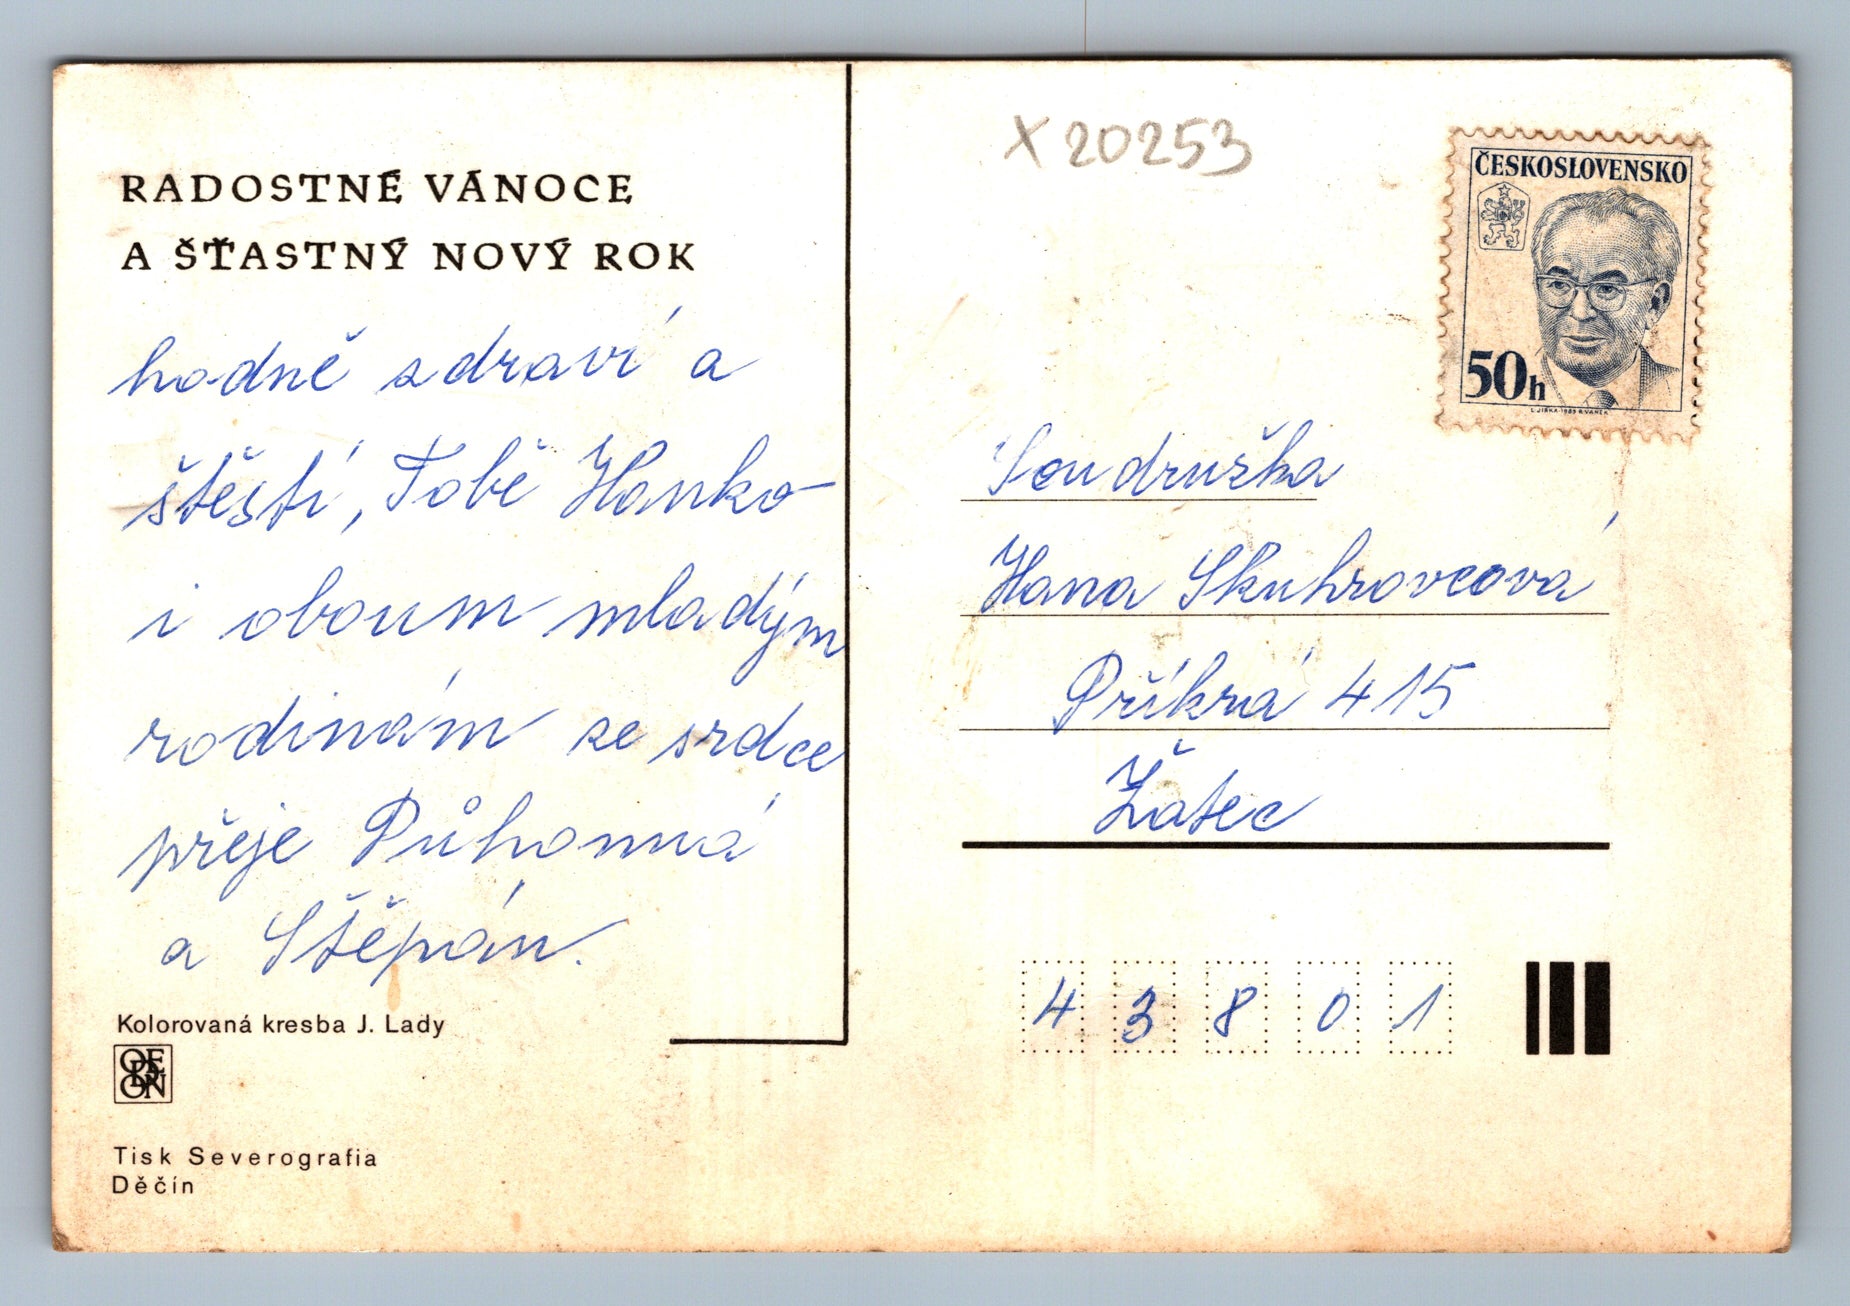 RADOSTNÉ VÁNOCE
A ŠŤASTNÝ NOVÝ ROK
hodně zdraví a
štěstí, Tobě Hanko
i oboum mladým
rodinám ze srdce
přeje Průhonná
a Štěpán.
Kolorovaná kresba J. Lady
ODEON
Tisk Severografia
Děčín
X 20253
ČESKOSLOVENSKO
50h
L. JIRKA 1983 R. VANĚK
Soudružka
Hana Skuhrovcová
Příkrá 415
Žatec
43801